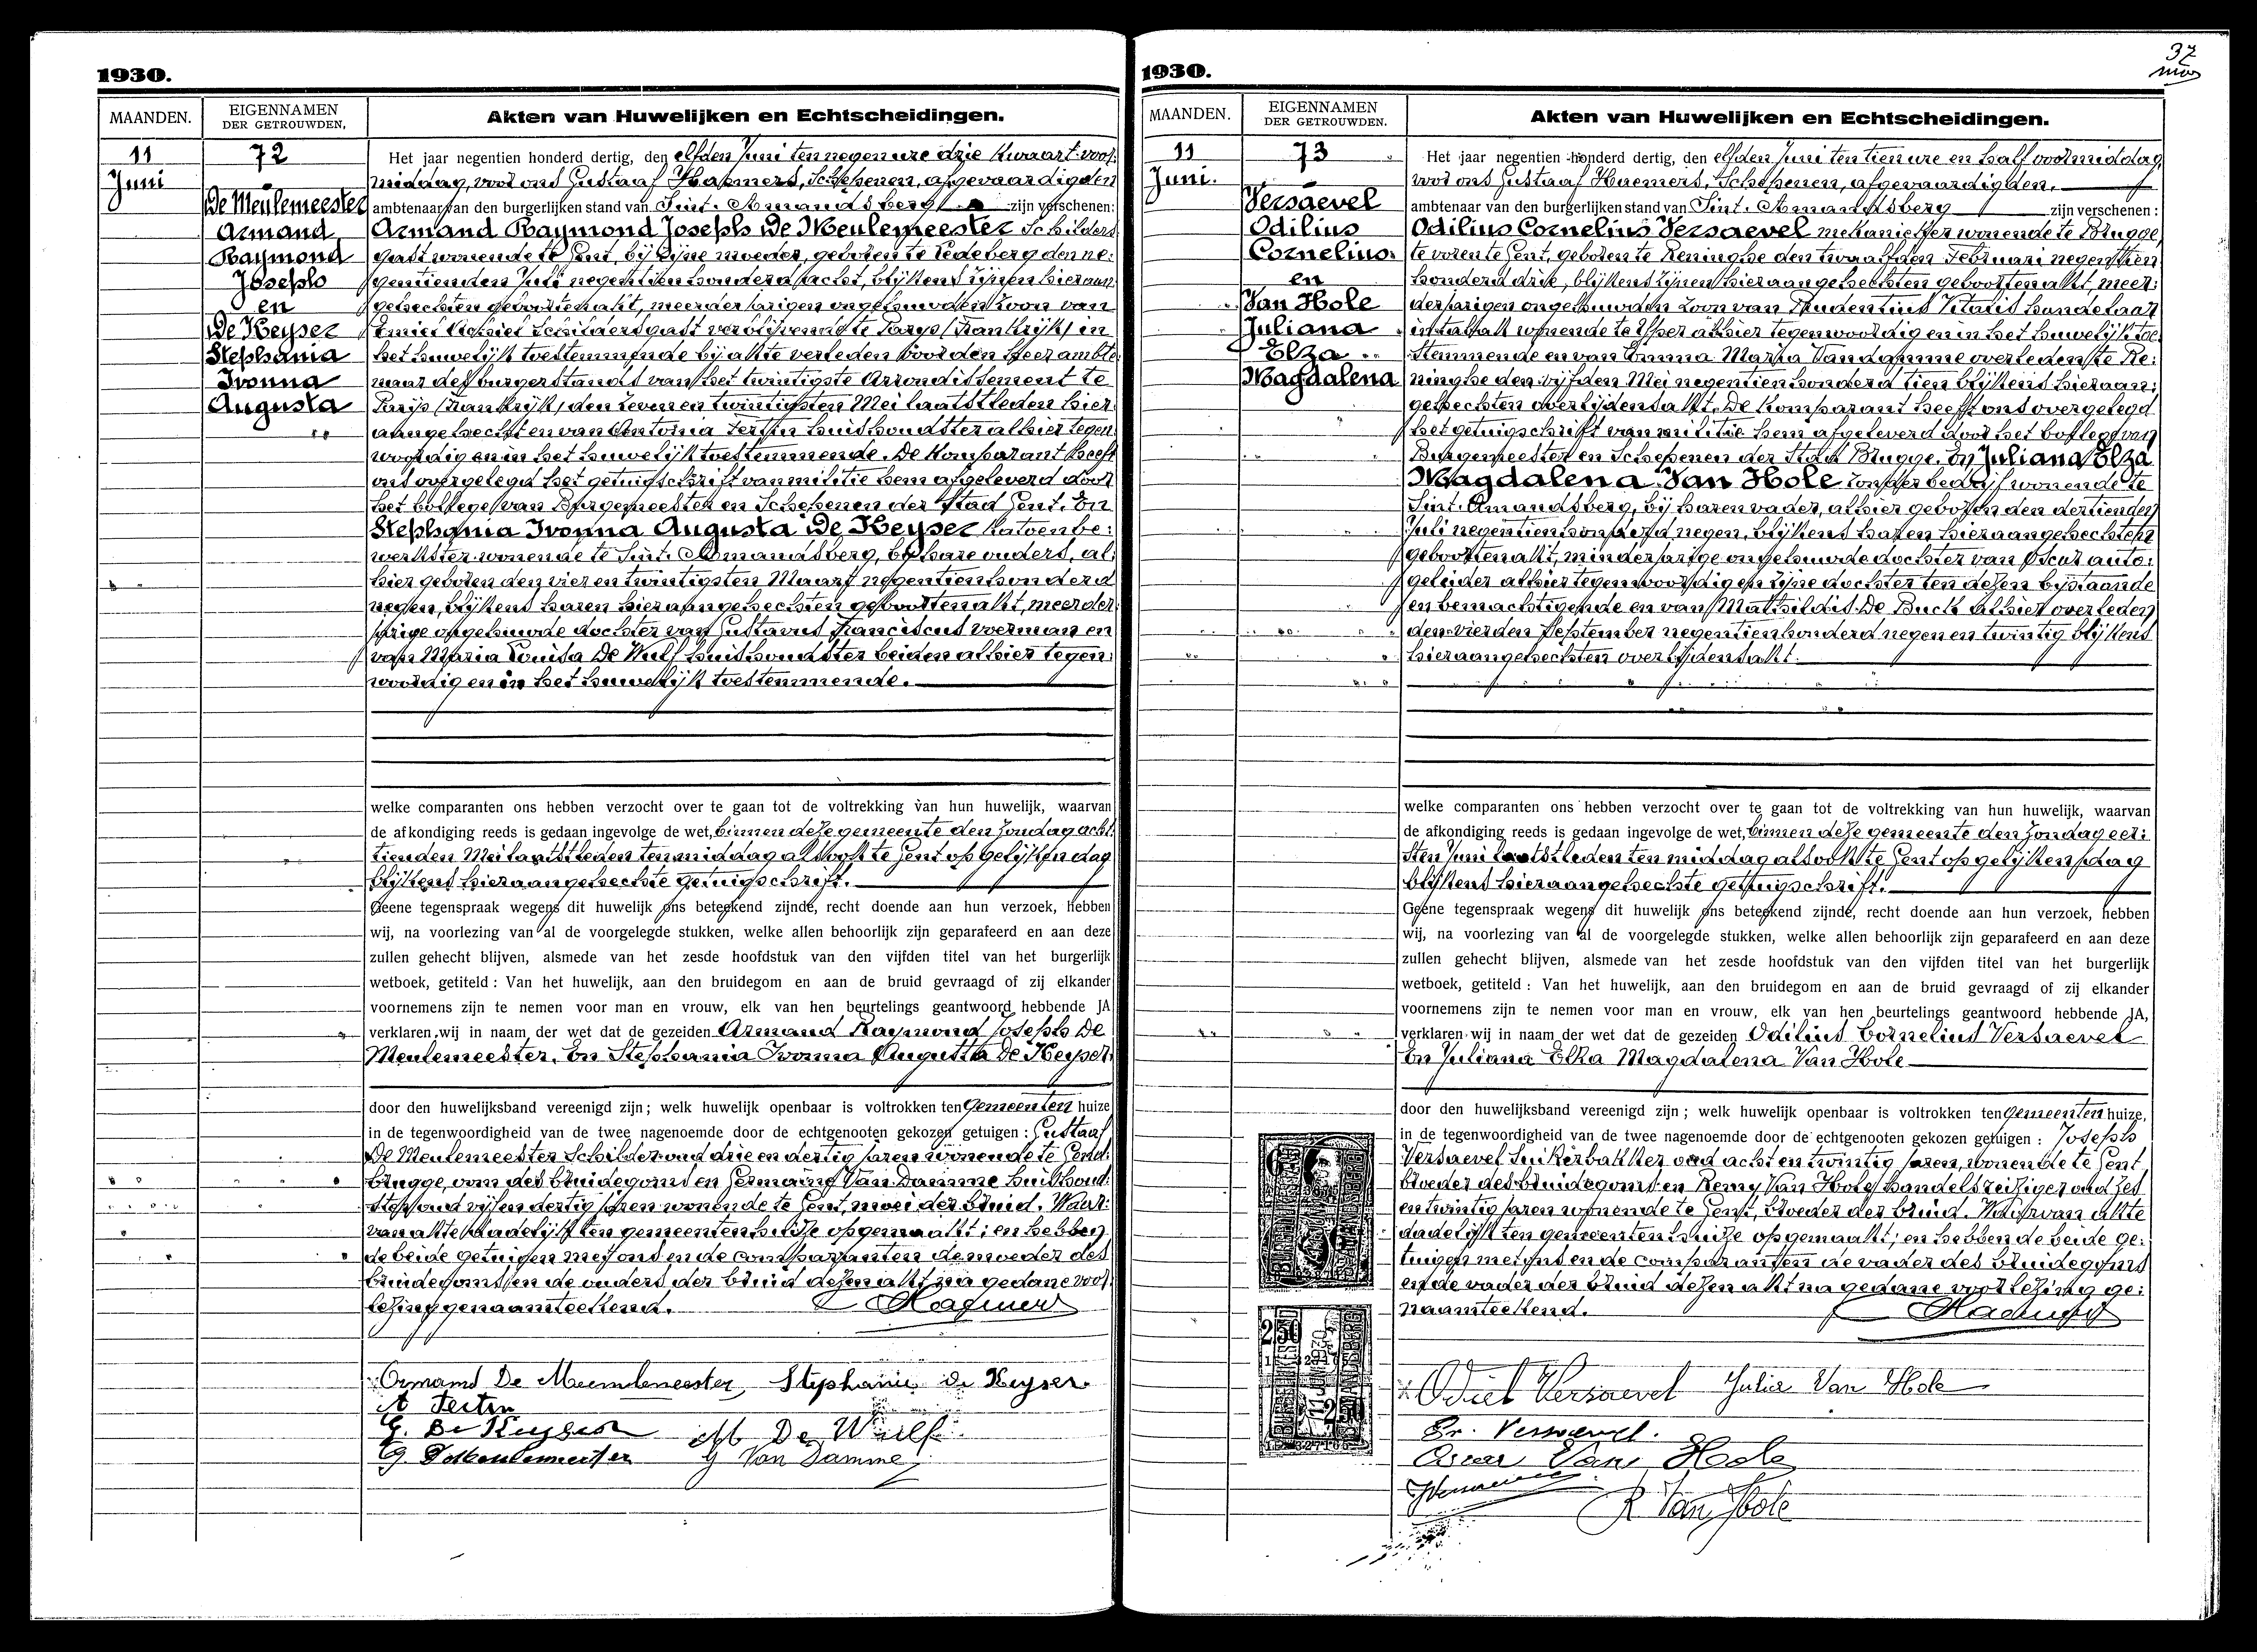 1930.
MAANDEN.
EIGENNAMEN
DER GETROUWDEN.
Akten van Huwelijken en Echtscheidingen.
11
Juni
72
De Meulemeester
Armand
Raymond
Joseph
en
De Keyser
Stephania
Ivonna
Augusta
Het jaar negentien honderd dertig, den elfden Juni ten negen ure drie kwaart voor:
middag, voor ons Gustaaf Haemers, Schepenen, afgevaardigden
ambtenaar van den burgerlijken stand van Sint-Amandsberg zijn verschenen:
Armand Raymond Joseph De Meulemeester Schilders
gast wonende te Gent, bij zijne moeder, geboren te Ledeberg den ne:
gentienden Juli negentien honderd acht, blijkens zijnen hieraan
gehechten geboortenakt, meerderjarigen ongehuwden zoon van
Schildersgast verblijvende te Parys (Frankrijk) in
het huwelijk toestemmende bij akte verleden voor den Heer ambte
naar des burgerstands van het twintigste Arrondissement te
Parys (Frankrijk) den zeven en twintigsten Mei laatstleden hier
aangehecht en van Antonia Tertin huishoudster alhier tegen
woordig en in het huwelijk toestemmende. De Komparant heeft
ons overgelegd het getuigschrift van militie hem afgeleverd door
het kollege van Burgemeester en Schepenen der Stad Gent. En
Stephania Ivonna Augusta De Keyser katoenbe:
werkster wonende te Sint-Amandsberg, bij hare ouders, al:
hier geboren den vier en twintigsten Maart negentien honderd
negen, blijkens haren hieraangehechten geboortenakt, meerder
jarige ongehuwde dochter van Gustavus Franciscus voerman en
van Maria Louisa De Wulf huishoudster beiden alhier tegen:
woordig en in het huwelijk toestemmende.
welke comparanten ons hebben verzocht over te gaan tot de voltrekking van hun huwelijk, waarvan
de afkondiging reeds is gedaan ingevolge de wet, binnen deze gemeente den Zondag acht:
tienden Mei laatstleden ten middag alsook te Gent op gelijken dag
blijkens hieraangehechte getuigschrift.
Geene tegenspraak wegens dit huwelijk ons beteekend zijnde, recht doende aan hun verzoek, hebben
wij, na voorlezing van al de voorgelegde stukken, welke allen behoorlijk zijn geparafeerd en aan deze
zullen gehecht blijven, alsmede van het zesde hoofdstuk van den vijfden titel van het burgerlijk
wetboek, getiteld : Van het huwelijk, aan den bruidegom en aan de bruid gevraagd of zij elkander
voornemens zijn te nemen voor man en vrouw, elk van hen beurtelings geantwoord hebbende JA
verklaren wij in naam der wet dat de gezeiden Armand Raymond Joseph De
Meulemeester. En Stephania Ivonna Augusta De Keyser
door den huwelijksband vereenigd zijn; welk huwelijk openbaar is voltrokken ten Gemeenten huize
in de tegenwoordigheid van de twee nagenoemde door de echtgenooten gekozen getuigen : Gustaaf
De Meulemeester Schilder oud drie en dertig jaren wonende te Gend:
brugge, oom des bruidegoms en Germaine Van Damme huishoud:
ster oud vijf en dertig jaren wonende te Gent, moei der bruid. Waar:
van akte dadelijk ten gemeentenhuize opgemaakt; en hebben
de beide getuigen met ons en de comparanten de moeder des
bruidegoms en de ouders der bruid dezen akt na gedane voor
lezing genaamteekend. Haemers
Armand De Meulemeester Stephanie de Keyser
A Tertin
G. De Keyser M De Wulf
G. Demeulemeester G Van Damme
1930.
37
MAANDEN.
EIGENNAMEN
DER GETROUWDEN.
Akten van Huwelijken en Echtscheidingen.
11
Juni.
73
Versaevel
Odilius
Cornelius
en
Van Hole
Juliana
Elza
Magdalena
Het jaar negentien honderd dertig, den elfden Juni ten tien ure en half voormiddag
voor ons Gustaaf Haemers, Schepenen, afgevaardigden.
ambtenaar van den burgerlijken stand van Sint-Amandsberg zijn verschenen :
Odilius Cornelius Versaevel mekanieker wonende te Brugge
te voren te Gent, geboren te Reninghe den twaalfden Februari negentien
honderd drie, blijkens zijnen hieraangehechten geboortenakt, meer:
derjarigen ongehuwden zoon van Prudentius Vitalis handelaar
wonende te alhier tegenwoordig en in het huwelijk toe
stemmende en van Emma Maria Vandamme overleden te Re:
ninghe den vijfden Mei negentien honderd tien blijkens hieraan:
gehechten overlijdensakt. De Komparant heeft ons overgelegd
het getuigschrift van militie hem afgeleverd door het kollege van
Burgemeester en Schepenen der Stad Brugge. En Juliana Elza
Magdalena Van Hole zonder bedrijf wonende te
Sint-Amandsberg, bij haren vader, alhier geboren den dertienden
Juli negentien honderd negen, blijkens haren hieraangehechten
geboortenakt, minderjarige ongehuwde dochter van Oscar auto:
geleider alhier tegenwoordig en zijne dochter ten dezen bijstaande
en bemachtigende en van Mathildis De Buck alhier overleden
den vierden September negentien honderd negen en twintig blijkens
hieraangehechten overlijdensakt.
welke comparanten ons hebben verzocht over te gaan tot de voltrekking van hun huwelijk, waarvan
de afkondiging reeds is gedaan ingevolge de wet, binnen deze gemeente den Zondag eer:
sten Juni laatstleden ten middag alsook te Gent op gelijken dag
blijkens hieraangehechte getuigschrift.
Geene tegenspraak wegens dit huwelijk ons beteekend zijnde, recht doende aan hun verzoek, hebben
wij, na voorlezing van al de voorgelegde stukken, welke allen behoorlijk zijn geparafeerd en aan deze
zullen gehecht blijven, alsmede van het zesde hoofdstuk van den vijfden titel van het burgerlijk
wetboek, getiteld : Van het huwelijk, aan den bruidegom en aan de bruid gevraagd of zij elkander
voornemens zijn te nemen voor man en vrouw, elk van hen beurtelings geantwoord hebbende JA,
verklaren wij in naam der wet dat de gezeiden Odilius Cornelius Versaevel
En Juliana Elza Magdalena Van Hole
door den huwelijksband vereenigd zijn ; welk huwelijk openbaar is voltrokken ten Gemeenten huize,
in de tegenwoordigheid van de twee nagenoemde door de echtgenooten gekozen getuigen : Joseph
Versaevel Suikerbakker oud acht en twintig jaren, wonende te Gent
broeder des bruidegoms en Remy Van Hole handelsreiziger oud zes
en twintig jaren wonende te Gent, broeder der bruid. Waarvan akte
dadelijk ten gemeentenhuize opgemaakt; en hebben de beide ge:
tuigen met ons en de comparanten de vader des bruidegoms
en de vader der bruid dezen akt na gedane voorlezing ge:
naamteekend. Haemers
Odiel Versaevel Julia Van Hole
Pr. Versaevel.
Oscar Van Hole
R Van Hole